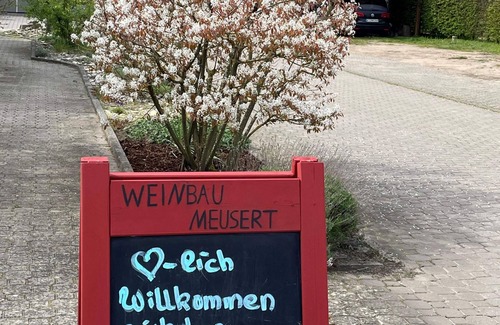 WEINBAU
MEUSERT
♡-lich
Willkommen